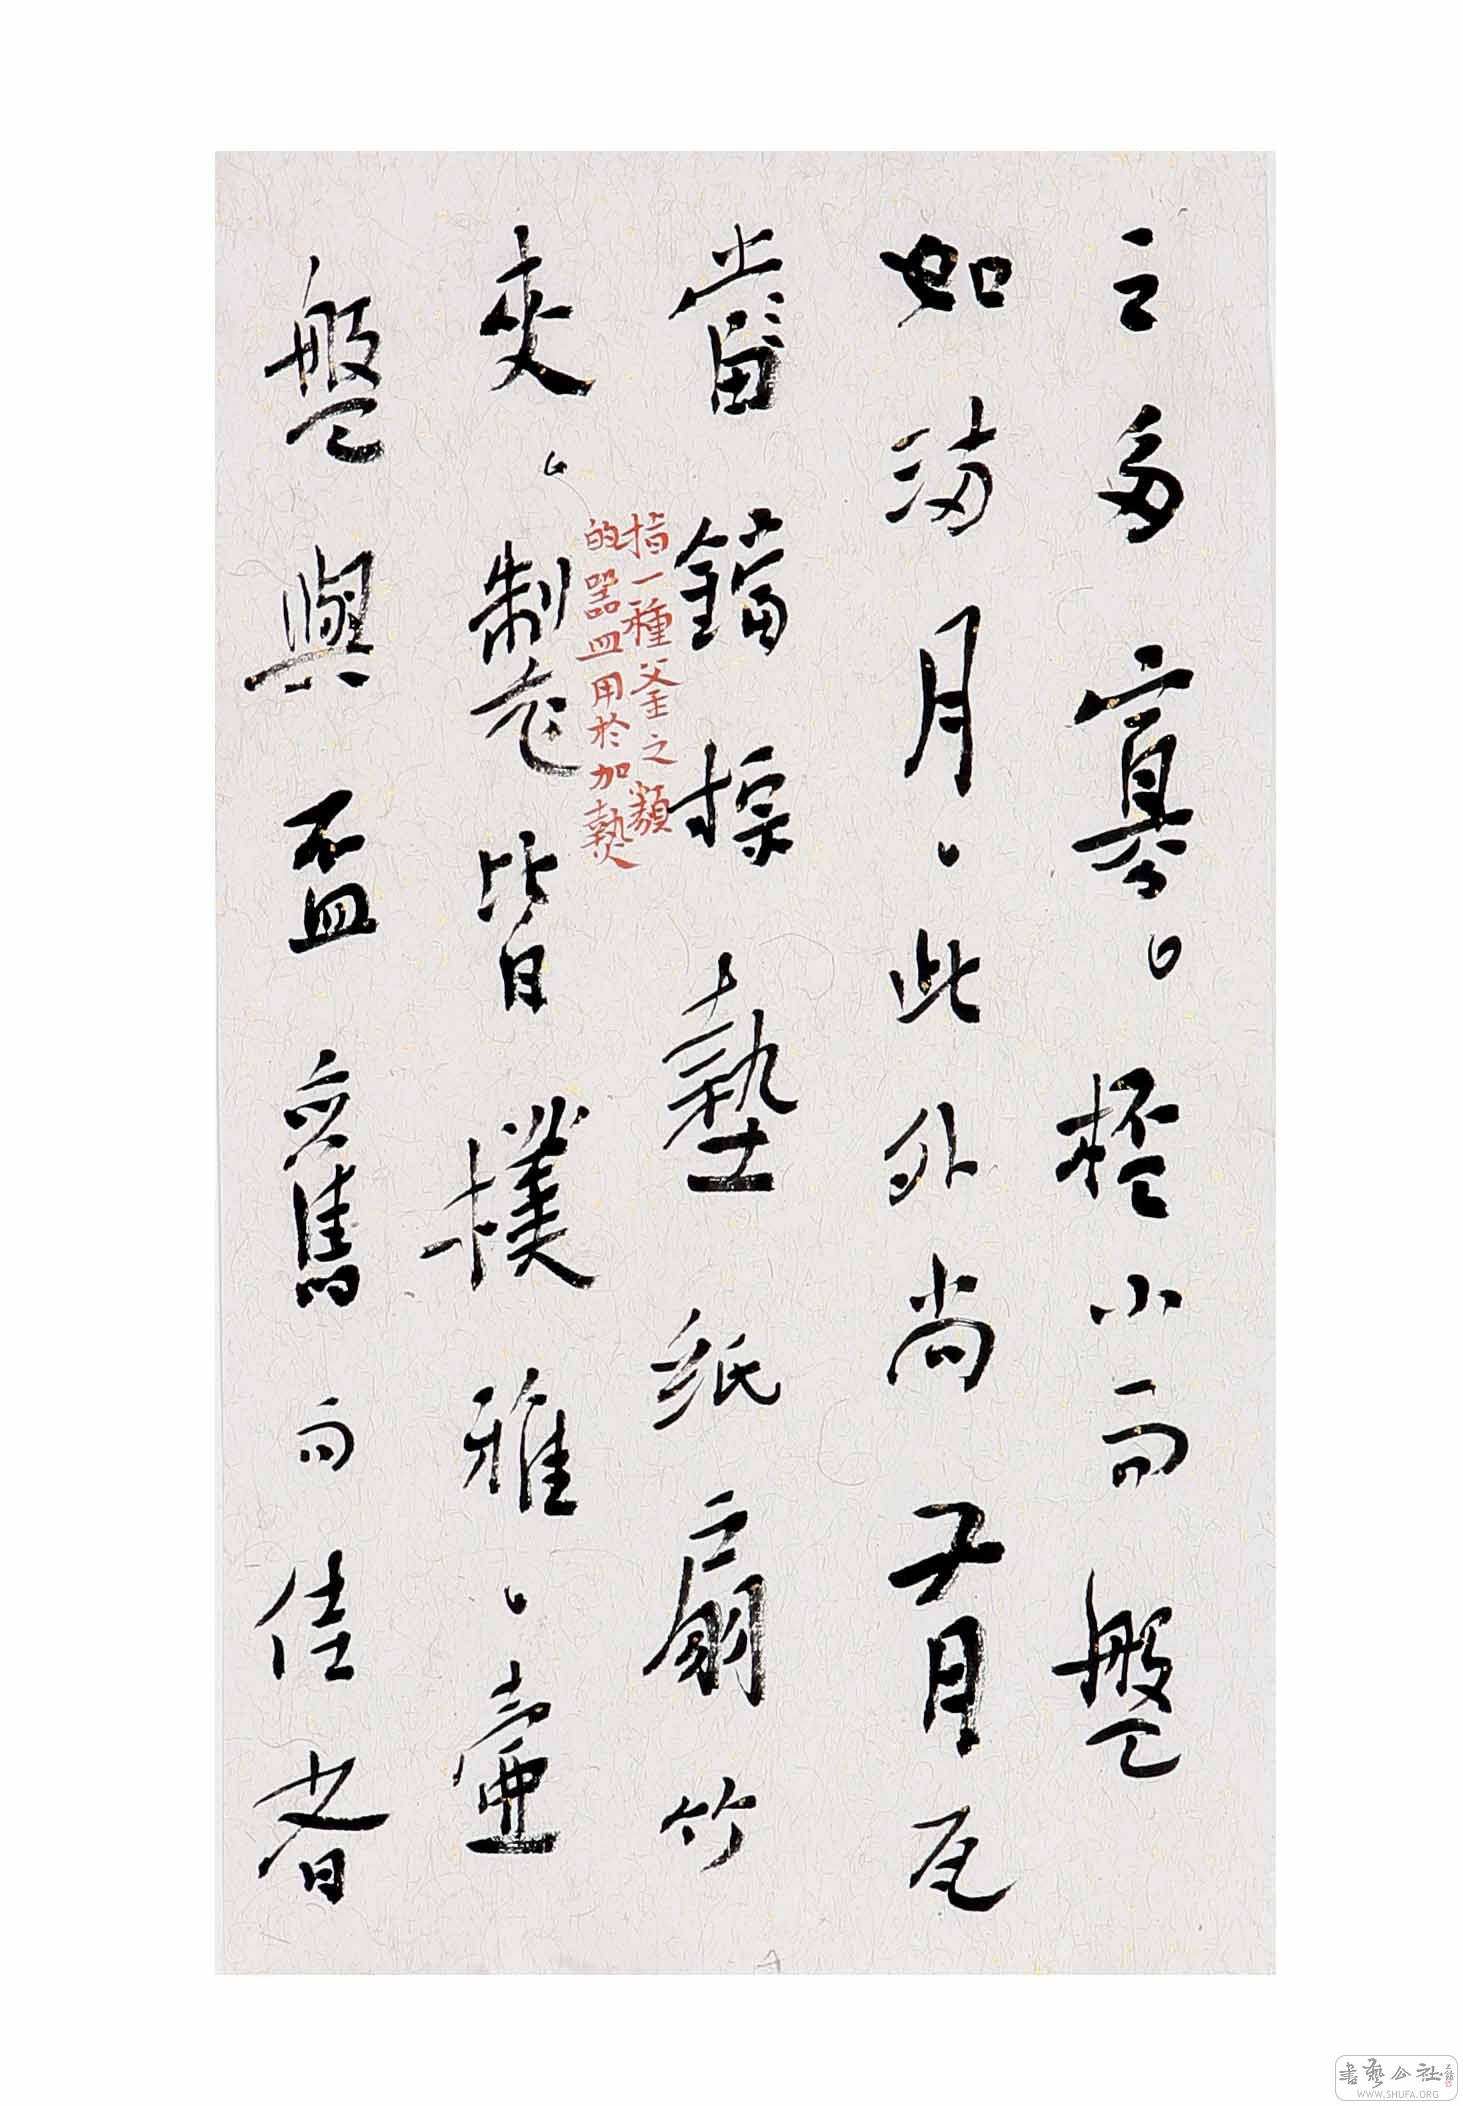 之多寡。杯小而盤
如滿月、此外尚有瓦
當鐺棕墊紙扇竹
指一種釜之類
的器皿用於加熱
夾、製皆樸雅、壺
盤與盃舊而佳者
書藝公社
WWW.SHUFA.ORG